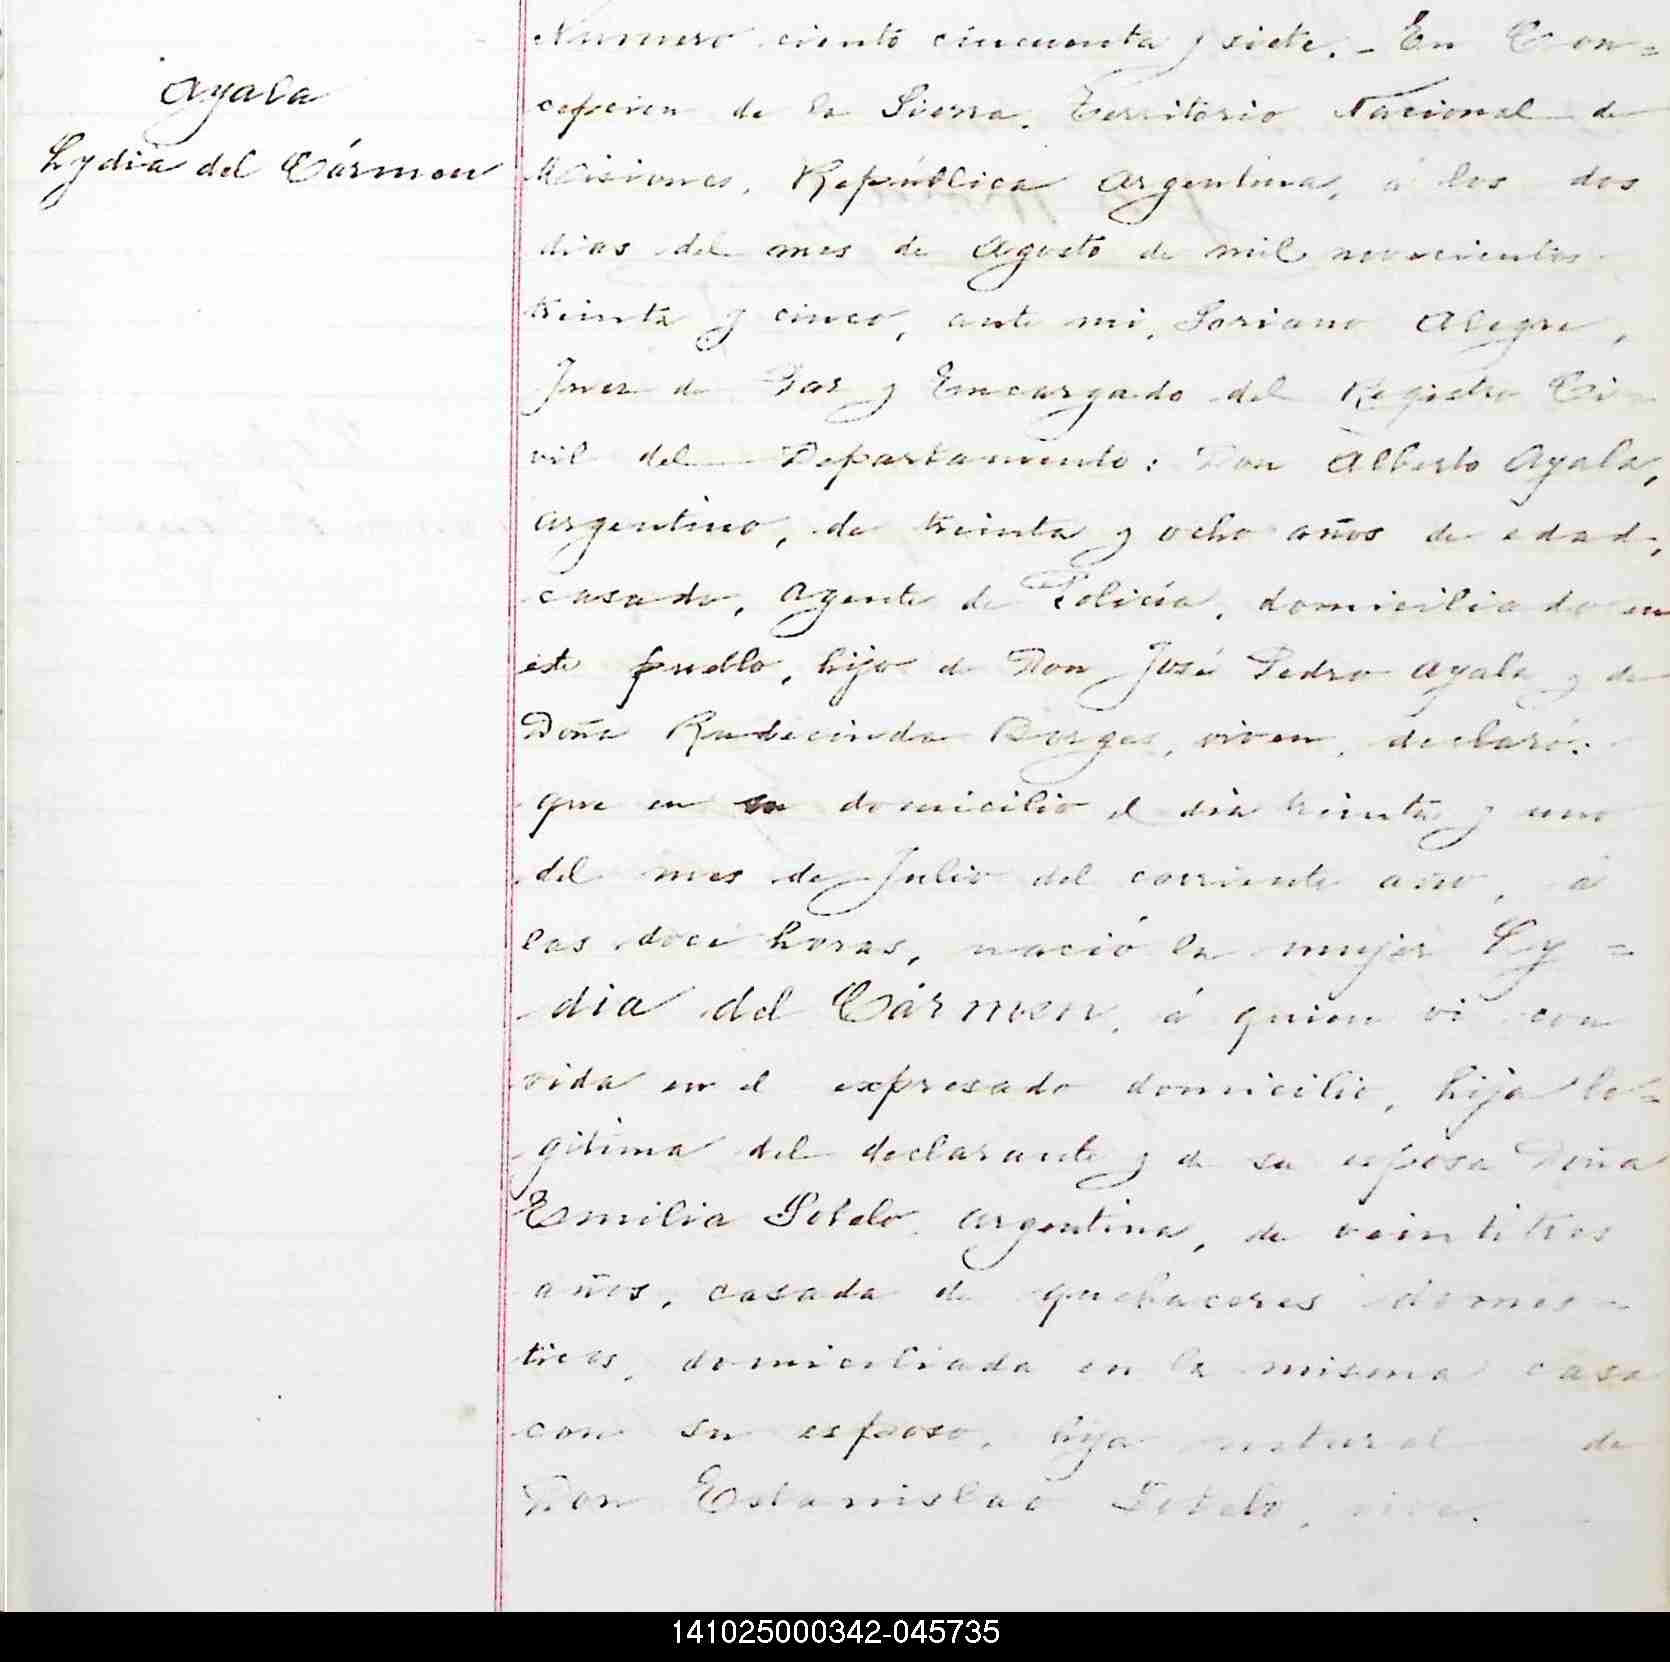 Ayala
Lydia del Cármen
Numero ciento cincuenta y siete. - En Con=
cepcion de la Sierra, Territorio Nacional de
Misiones, República Argentina, á los dos
dias del mes de Agosto de mil novecientos
treinta y cinco, ante mi, Soriano Alegre,
Juez de Paz y Encargado del Registro Ci-
vil del Departamento: Don Alberto Ayala,
argentino, de treinta y ocho años de edad,
casado, Agente de Policía, domiciliado en
este pueblo, hijo de Don José Pedro Ayala y de
Doña Rudecinda Borges, viven, declaró:
que en su domicilio el dia treinta y uno
del mes de Julio del corriente año, á
las doce horas, nació la mujer Ly=
dia del Cármen, á quien vi con
vida en el expresado domicilio, hija le=
gitima del declarante y de su esposa Doña
Emilia Sotelo, argentina, de veintitres
años, casada de quehaceres domes-
ticos, domiciliada en la misma casa
con su esposo, hija natural de
Don Estanislao Sotelo, vive.
141025000342-045735